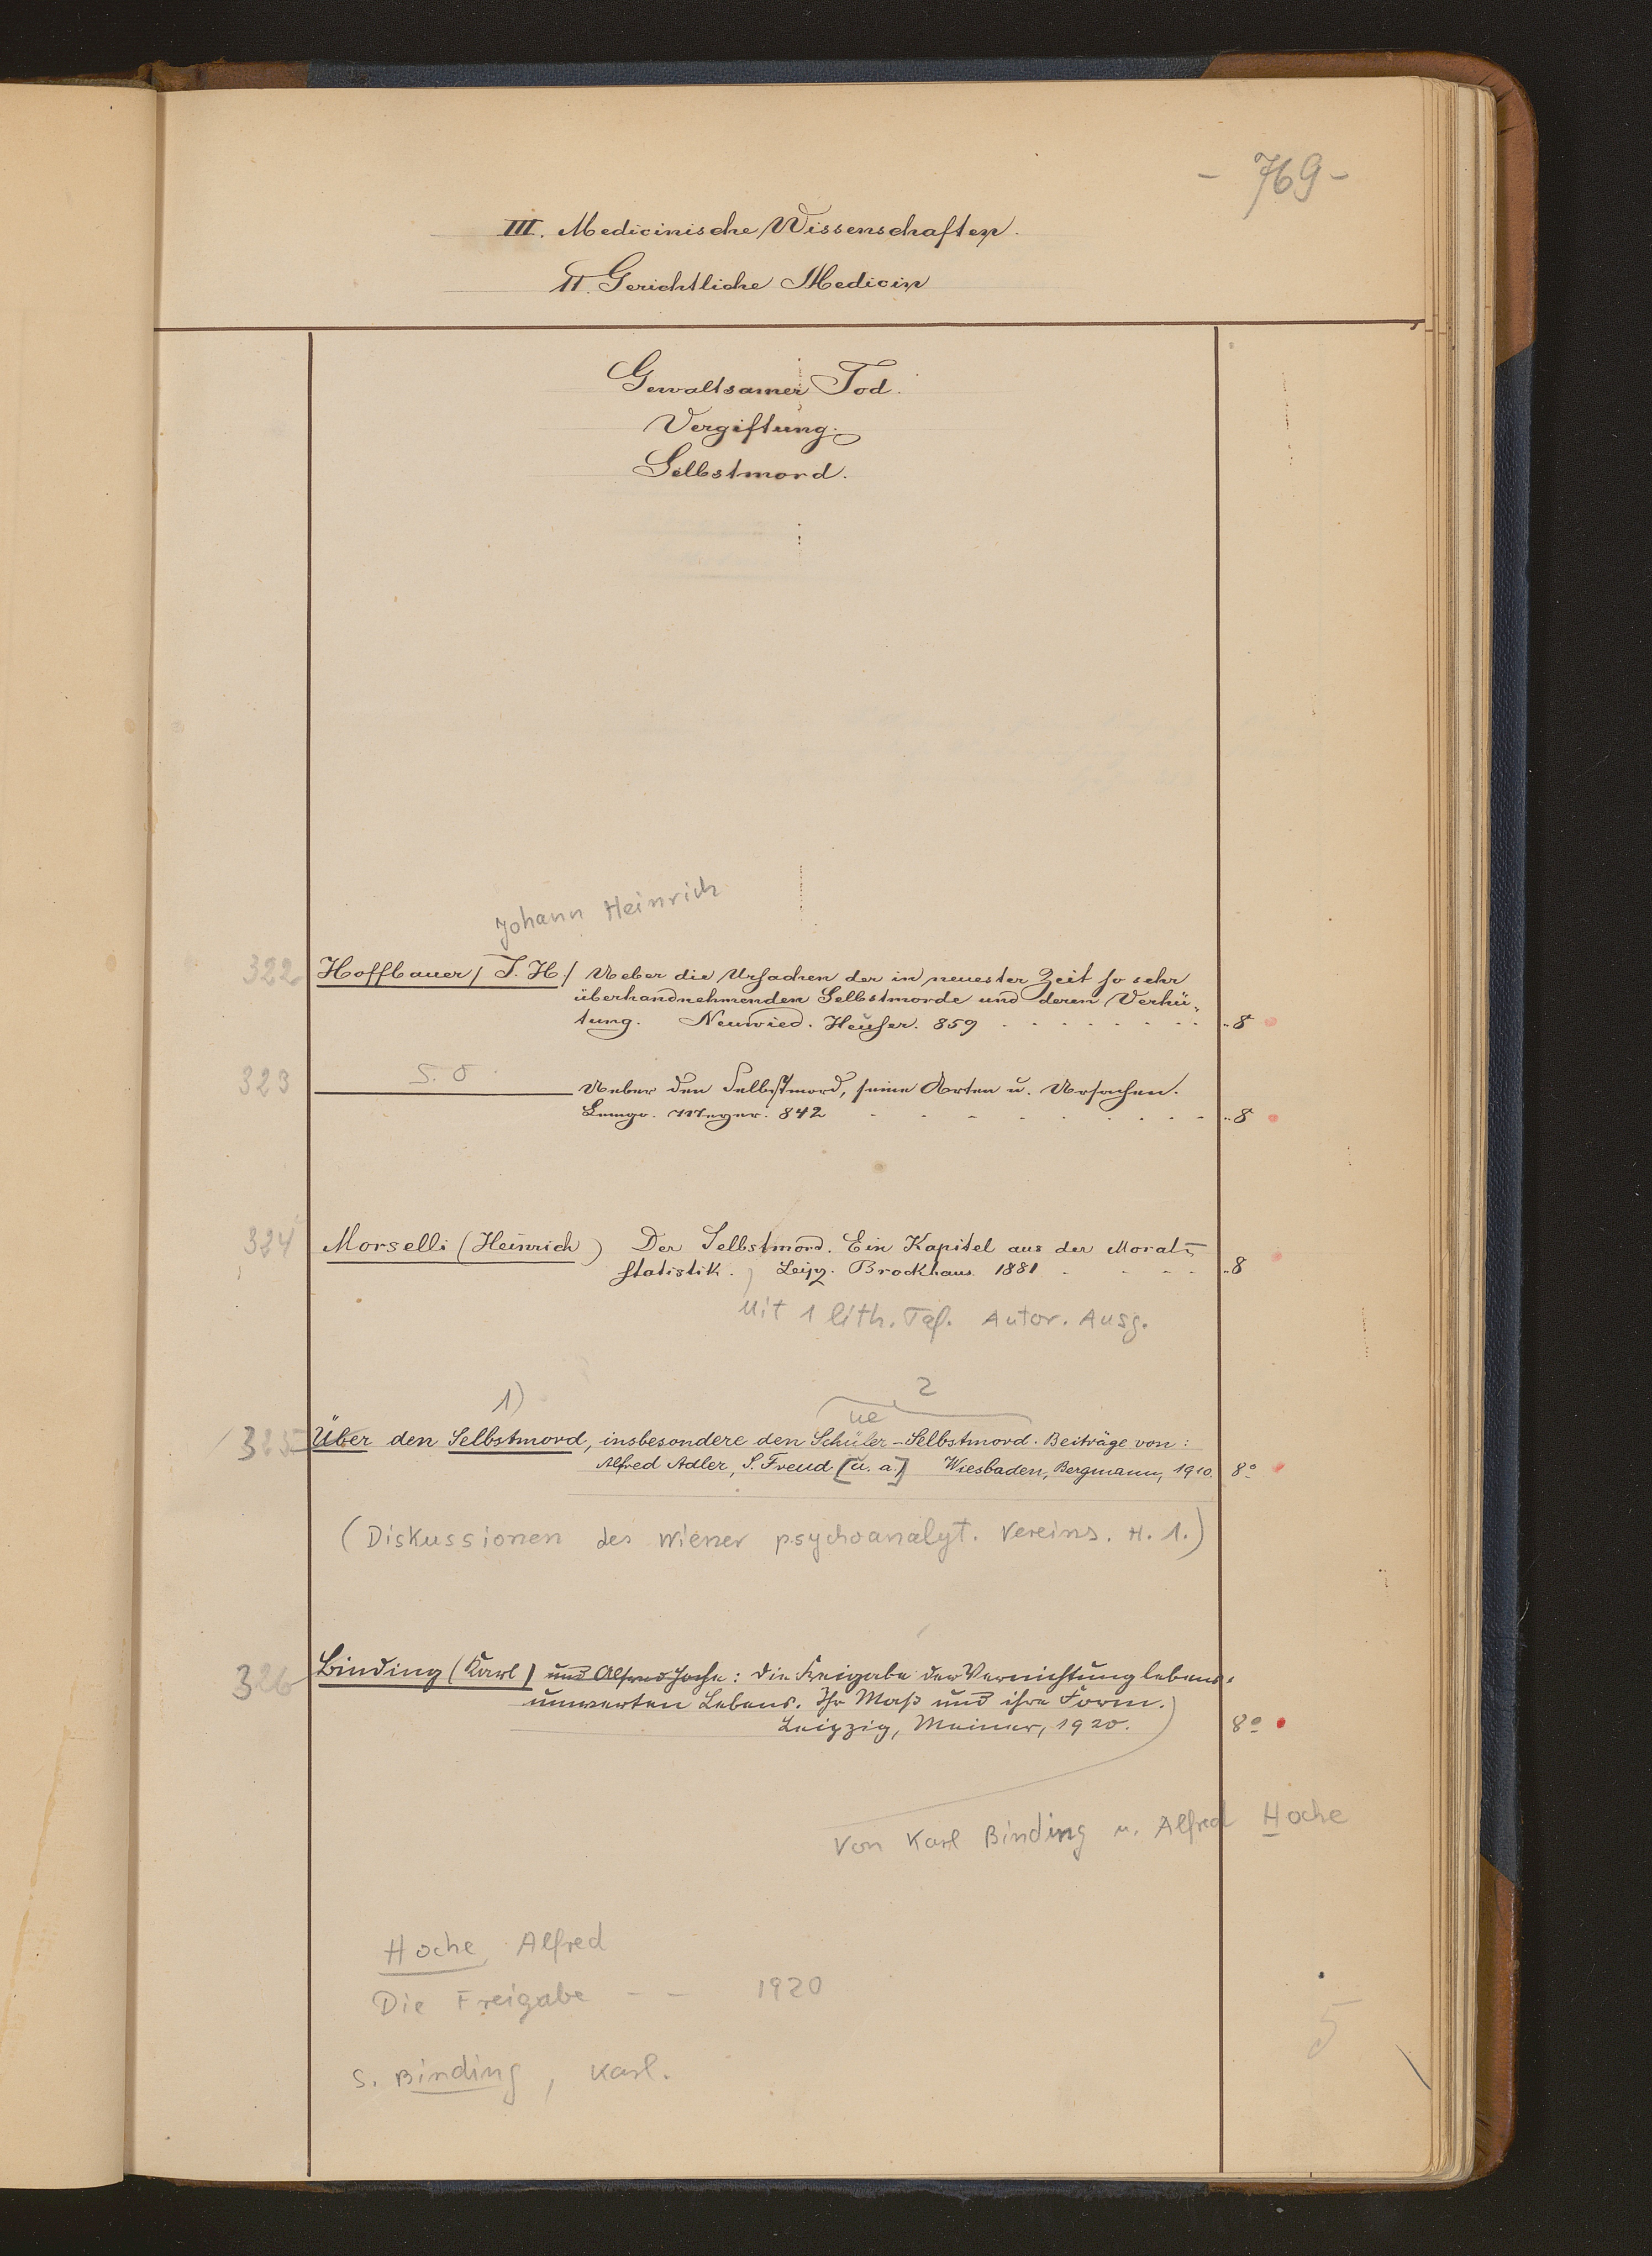 - 769 -
III. Medicinische Wissenschaften.
Gerichtliche Medicin
Gewaltsamer Tod.
Vergiftung.
Selbstmord.
Johann Heinrich
322 Hoffbauer / J. H. / Ueber die Ursachen der in neuester Zeit so sehr
überhandnehmenden Selbstmorde und deren Verhü-
tung. Neuwied. Heuser. 859 8
323 s. o. Ueber den Selbstmord, seine Arten u. Ursachen.
Lemgo. Meyer. 842 8
324 Morselli (Heinrich) Der Selbstmord. Ein Kapitel aus der Moral-
statistik. Leipz. Brockhaus. 1881 8
Mit 1 lith. Taf. Autor. Ausg.
1) 2
ue
325 Über den Selbstmord, insbesondere den Schüler-Selbstmord. Beiträge von:
Alfred Adler, S. Freud [u. a.] Wiesbaden, Bergmann, 1910. 8°
(Diskussionen des Wiener psychoanalyt. Vereins. H. 1.)
326 Binding (Karl) und Alfred Hoche: Die Freigabe der Vernichtung lebens-
unwerten Lebens. Ihr Maß und ihre Form.
Leipzig, Meiner, 1920. 8°
Von Karl Binding u. Alfred Hoche
Hoche, Alfred
Die Freigabe - - 1920
s. Binding, Karl.
5